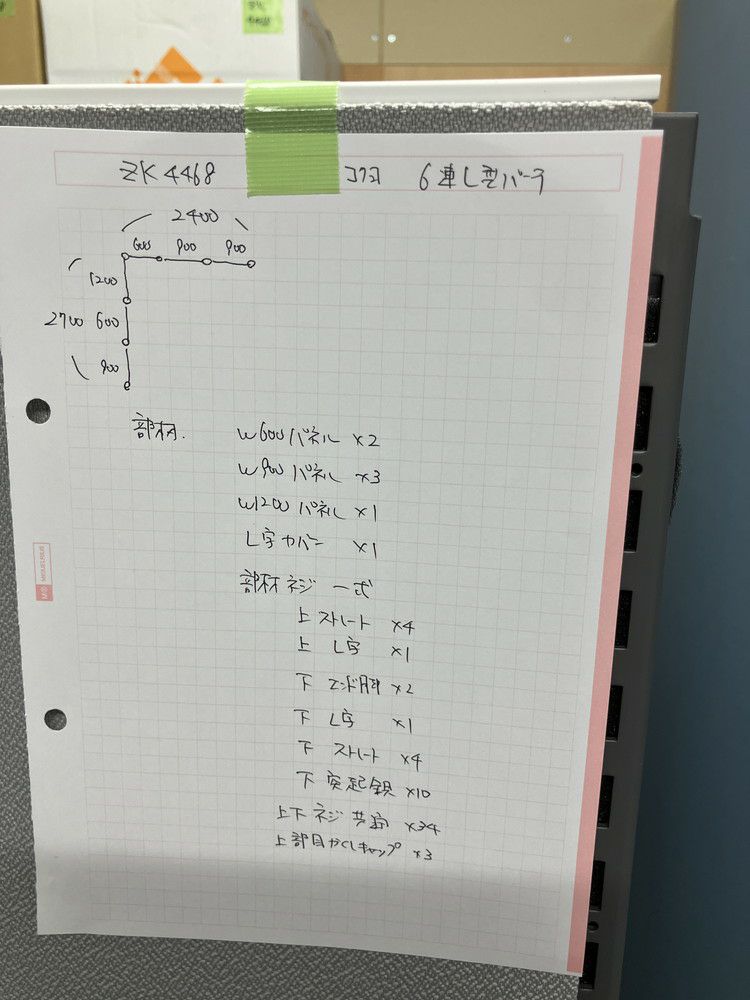 ZK4468 コクヨ 6連L型パーテ
2400
600 900 900
1200
2700 600
900
部材. W600パネル ×2
W900パネル ×3
W1200パネル ×1
L字カバー ×1
部材ネジ 一式
上ストレート ×4
上 L字 ×1
下 エンド脚 ×2
下 L字 ×1
下 ストレート ×4
下 突起鋲 ×10
上下ネジ共通 ×34
上部目かくしキャップ ×3